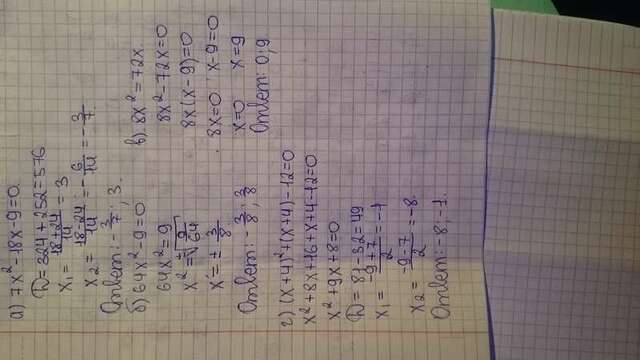 а) 7x²-18x-9=0.
D=324+252=576
x₁ = (18+24)/14 = 3
x₂ = (18-24)/14 = -6/14 = -3/7.
Ответ: -3/7; 3.
б) 64x²-9=0
64x²=9
x²=±√(9/64)
x=±3/8.
Ответ: -3/8; 3/8
в) 8x²=72x.
8x²-72x=0
8x(x-9)=0
8x=0 x-9=0
x=0 x=9
Ответ: 0; 9
г) (x+4)²+(x+4)-12=0
x²+8x+16+x+4-12=0
x²+9x+8=0
D=81-32=49
x₁ = (-9+7)/2 = -1
x₂ = (-9-7)/2 = -8.
Ответ: -8, -1.